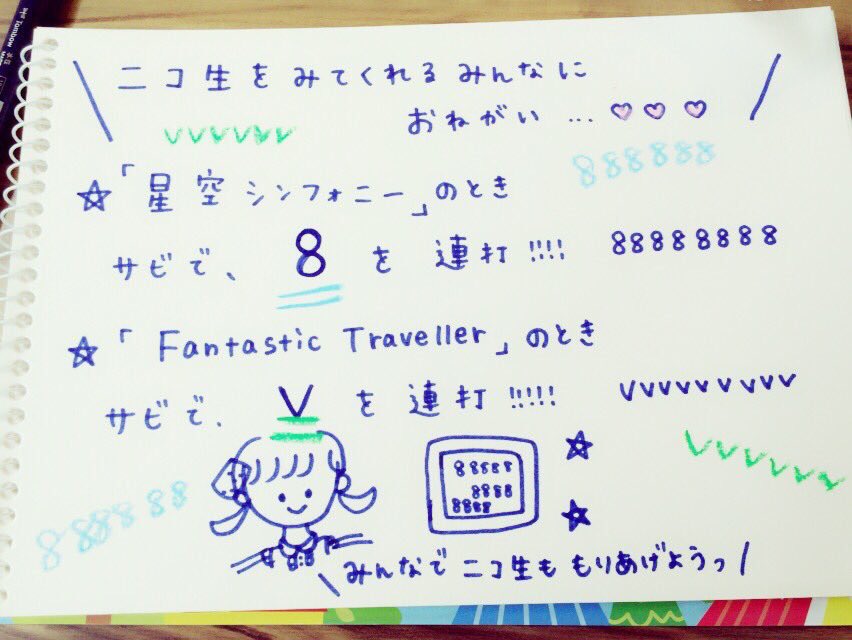 \ ニコ生をみてくれるみんなに
おねがい…♡♡♡ /
VVVVVV
888888
☆「星空シンフォニー」のとき
サビで、8を連打!!!! 88888888
☆「Fantastic Traveller」のとき
サビで、Vを連打!!!!! VVVVVVVVV
VVVVVV
888888
88888
8888
8888
\みんなでニコ生ももりあげようっ/
Tombow